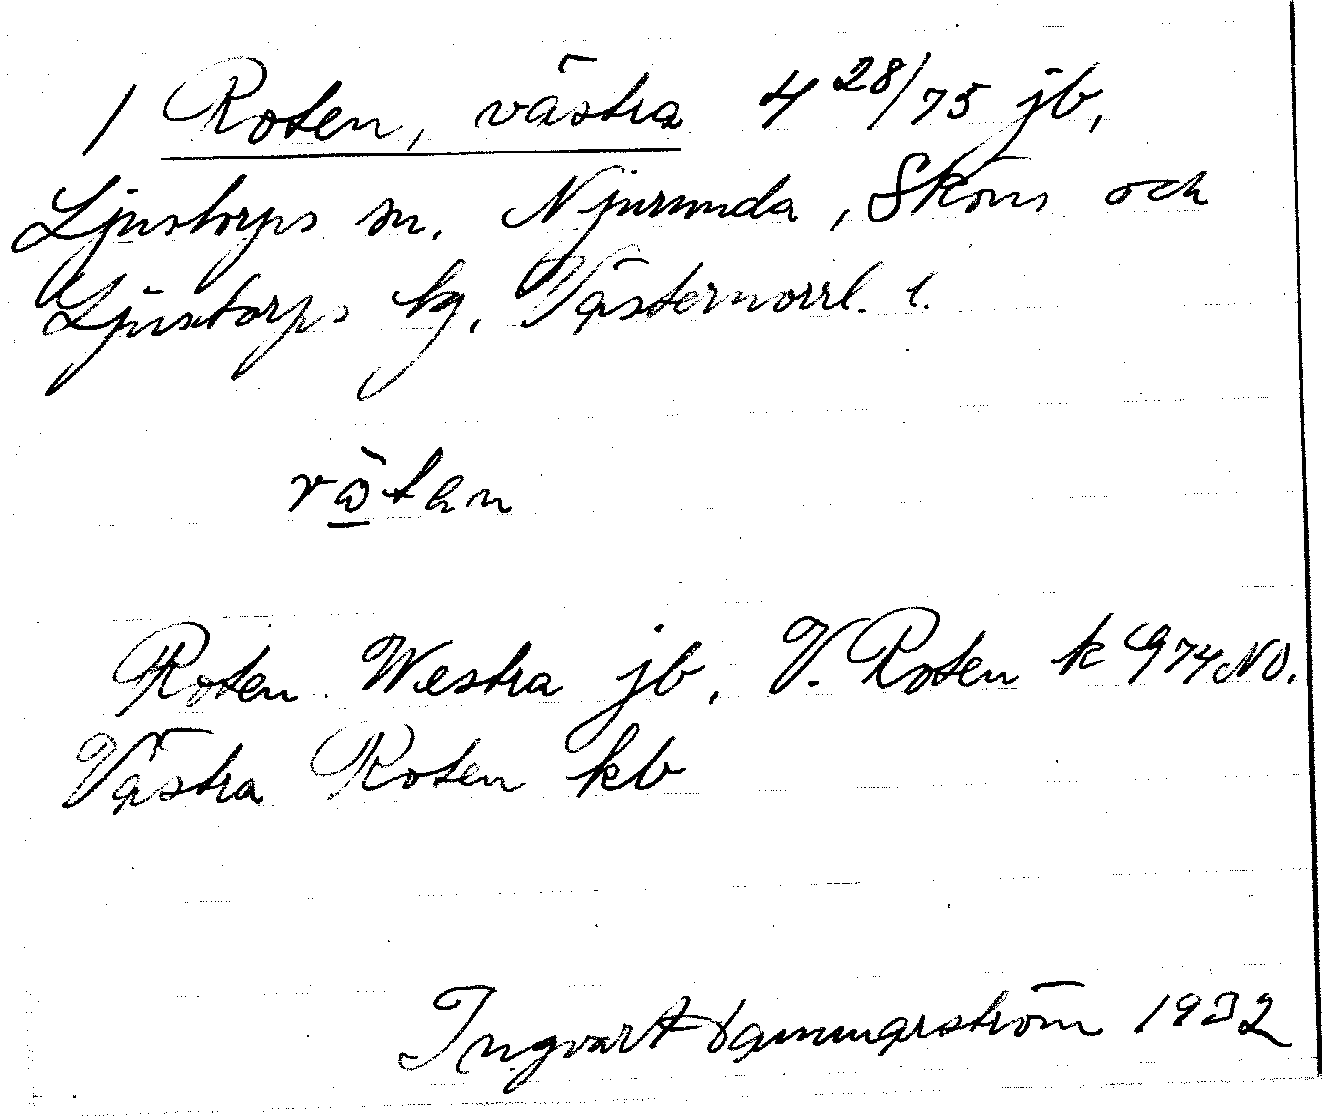 1 Roten, västra 4 28/75 jb,
Ljustorps sn. Njurunda, Sköns och
Ljustorps tg. Västernorrl. l.
Roten Westra jb. V. Roten k 974 NO.
Västra Roten kb
Ingvar Hammarström 1932